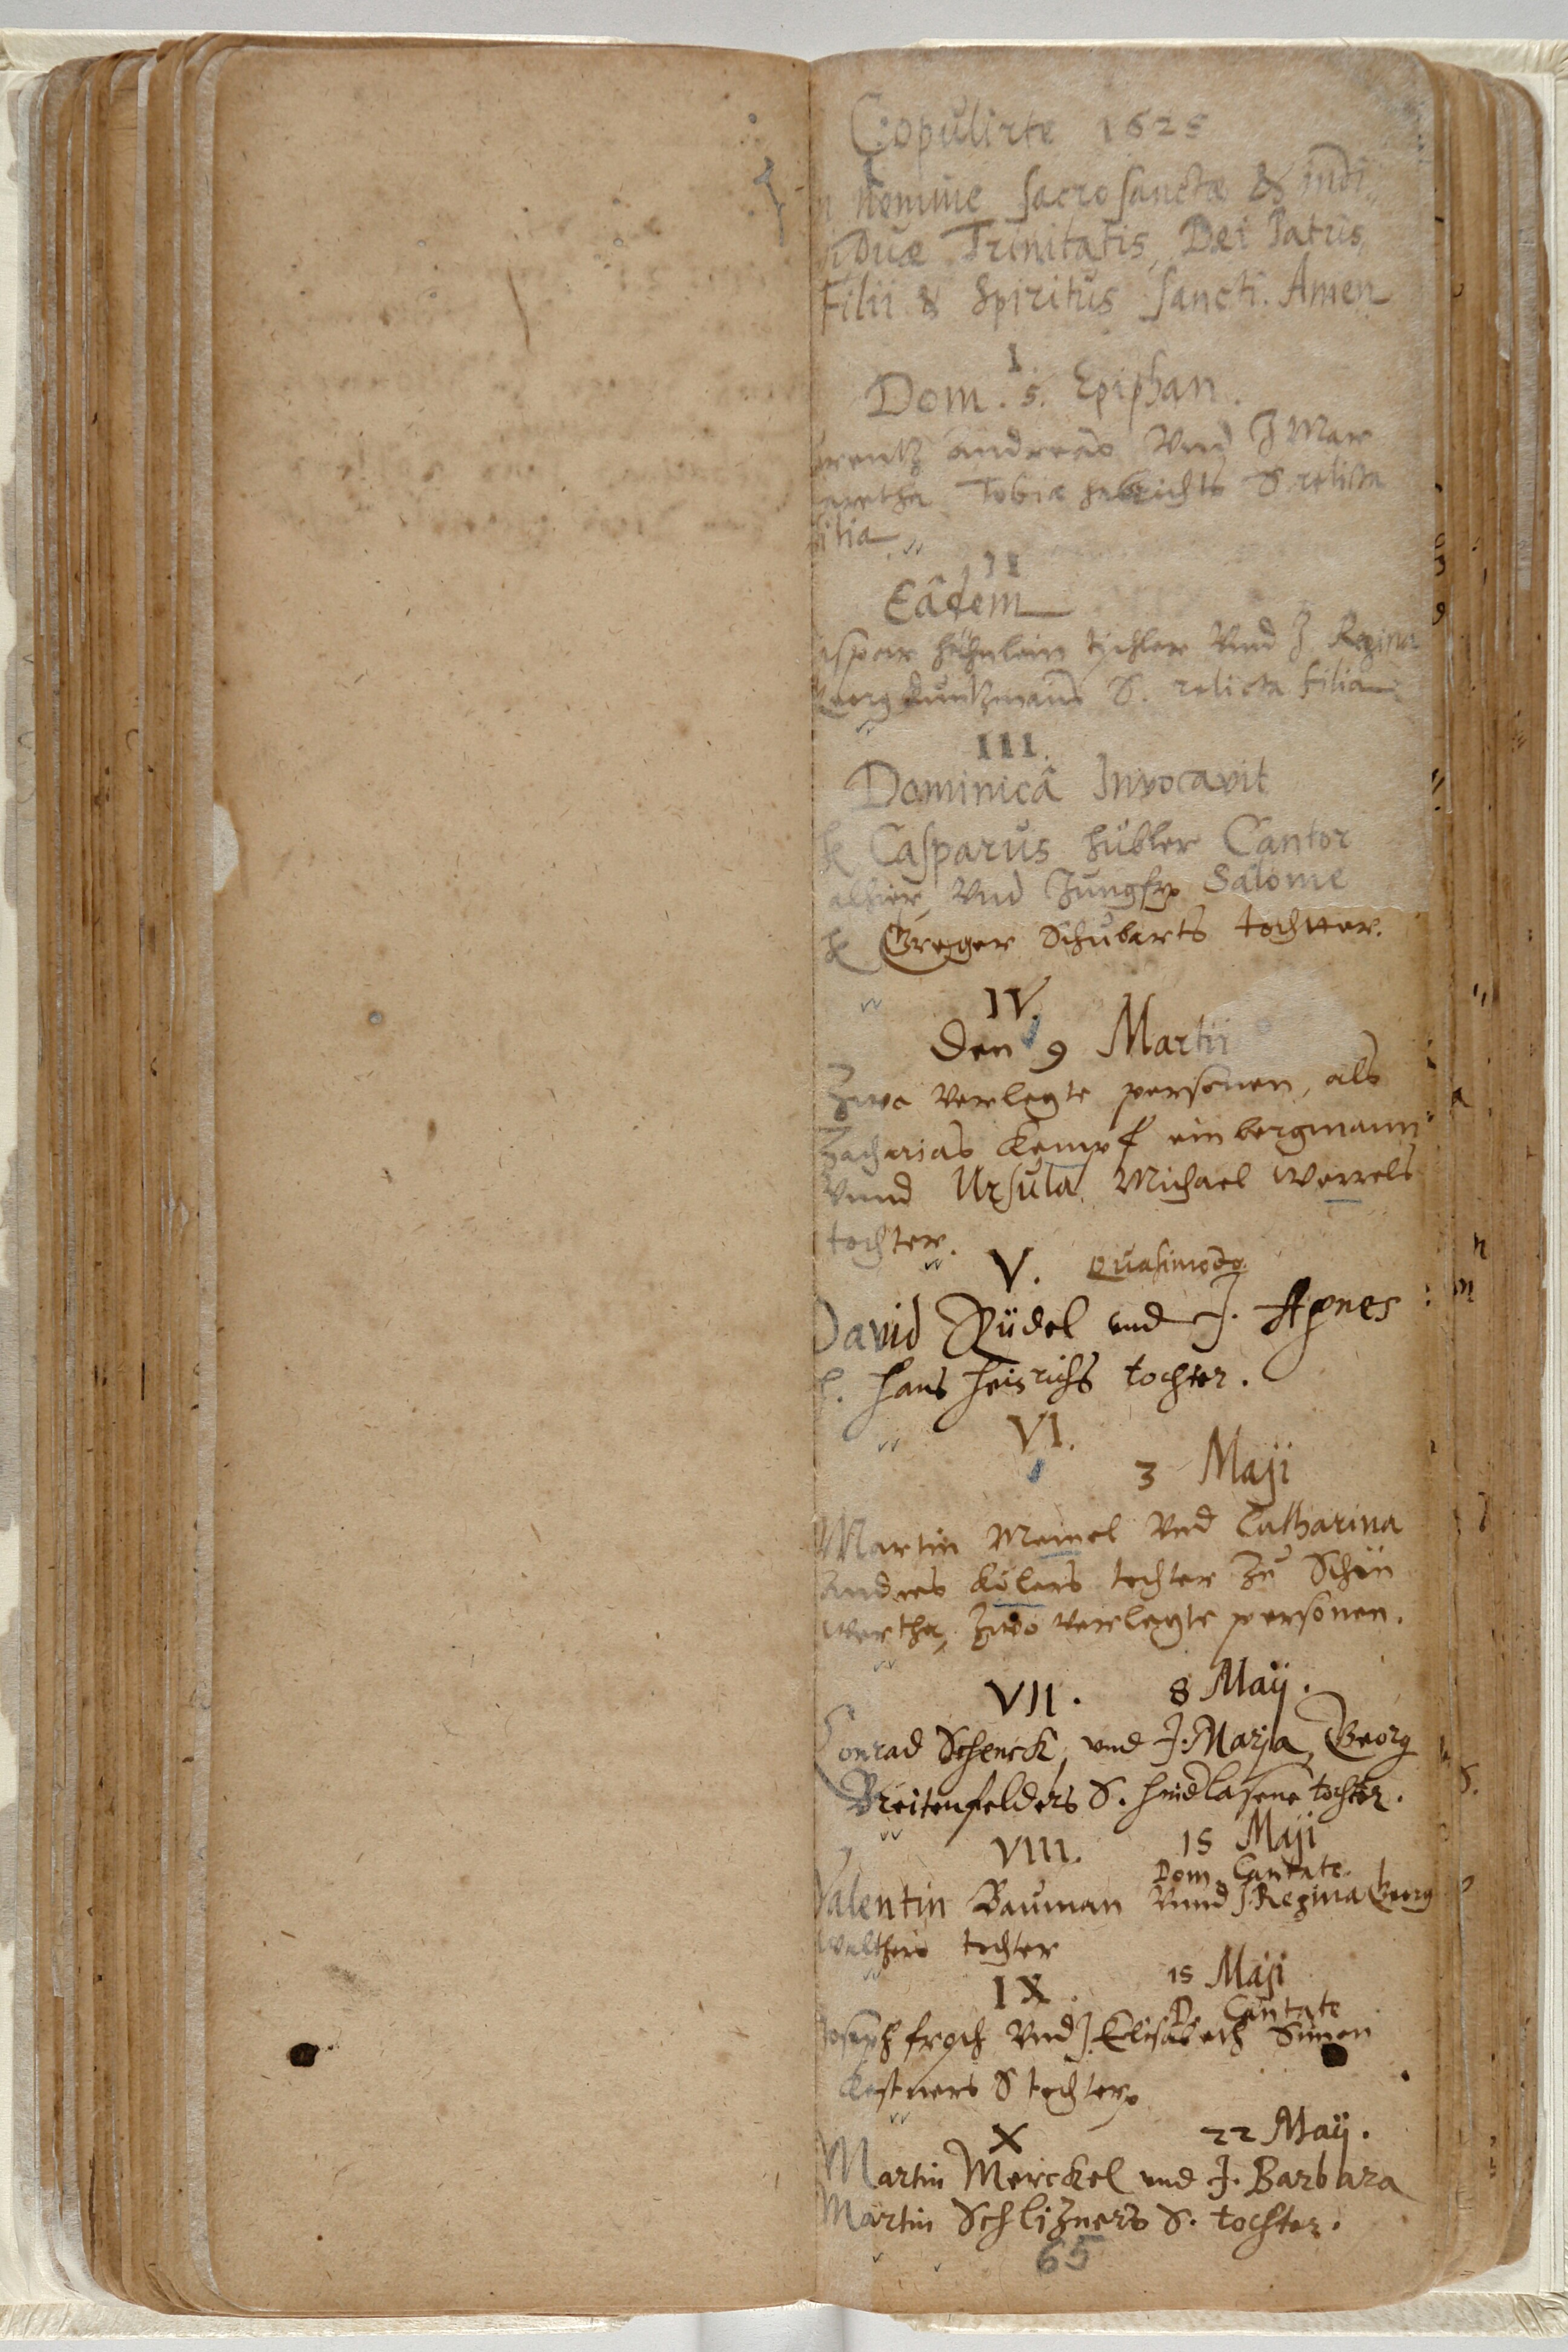 Copulirte 1625
n nomine sacrosanctæ & indi
viduæ Trinitatis, Dei Patris,
Filii & Spiritus sancti. Amen
I
Dom. 5. Epiphan.
orentz andreas Vnd J Mar
garetha Tobiæ habrichts S. relicta
filia
II
Eâdem
aspar höhnlein tischler Vnd J Regina
Georg Kuntzmans S. relicta filia
III.
Dominicâ Invocavit
H Casparus hübler Cantor
alhier, Vnd Jungfr Salome
H Greger Schubarts tochtter.
IV.
den 9 Martii
Zwo verlegte personen, als
Zacharias Kempf ein bergmann
Vnnd Ursula Michael werrels
tochter.
V. Quasimodo.
David Rüdel und J. Agnes
H. Hans Heinrichs tochter.
VI.
3 Maji
Martin Meinel Vnd Catharina
Andres Kölers tochter zu Schön
wertha, zwo verlegte personen.
VII. 8 Maij.
Conrad Schenck, und J. Maria, Georg
Breitenfelders S. hindlasene tochter.
VIII. 15 Maji
Dom. Cantate.
Valentin Bauman Vnnd J. Regina Georg
walthers tochter
IX. 15 Maji
D. Cantate
Joseph froch Vnd J. Elisabeth Simon
Kestners S tochter
X 22 Maij.
Martin Merckel und J. Barbara
Martin Schlizners S. tochter.
65